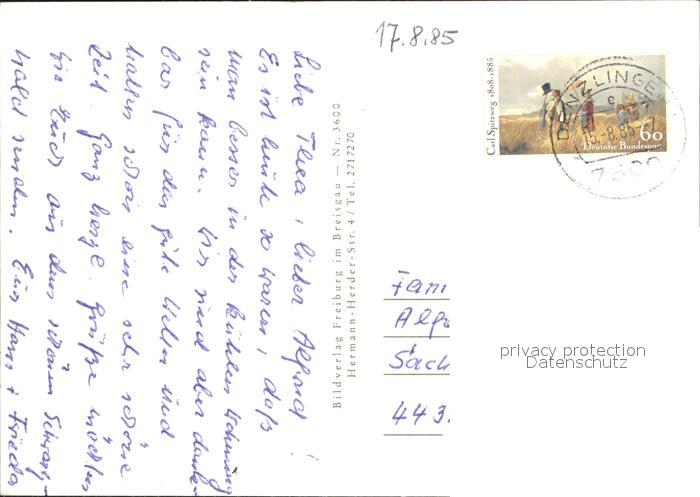 17.8.85
Liebe Thea, lieber Alfred!
Es ist heute so warm, daß
man besser in der kühlen Wohnung
sein kann. Wir sind aber dank-
bar für das gute Wetter und
hatten schon eine sehr schöne
Zeit. Ganz herzl. Grüße möchten
wir Euch aus dem schönen Schwarz-
wald senden. Eure Hans + Frieda
Bildverlag Freiburg im Breisgau — Nr. 3600
Hermann-Herder-Str. 4 / Tel. 2717270
Carl Spitzweg 1808-1885
60
Deutsche Bundespost
DENZLINGEN
e
-8.85-
Fam
Alfr
Säch
443
privacy protection
Datenschutz